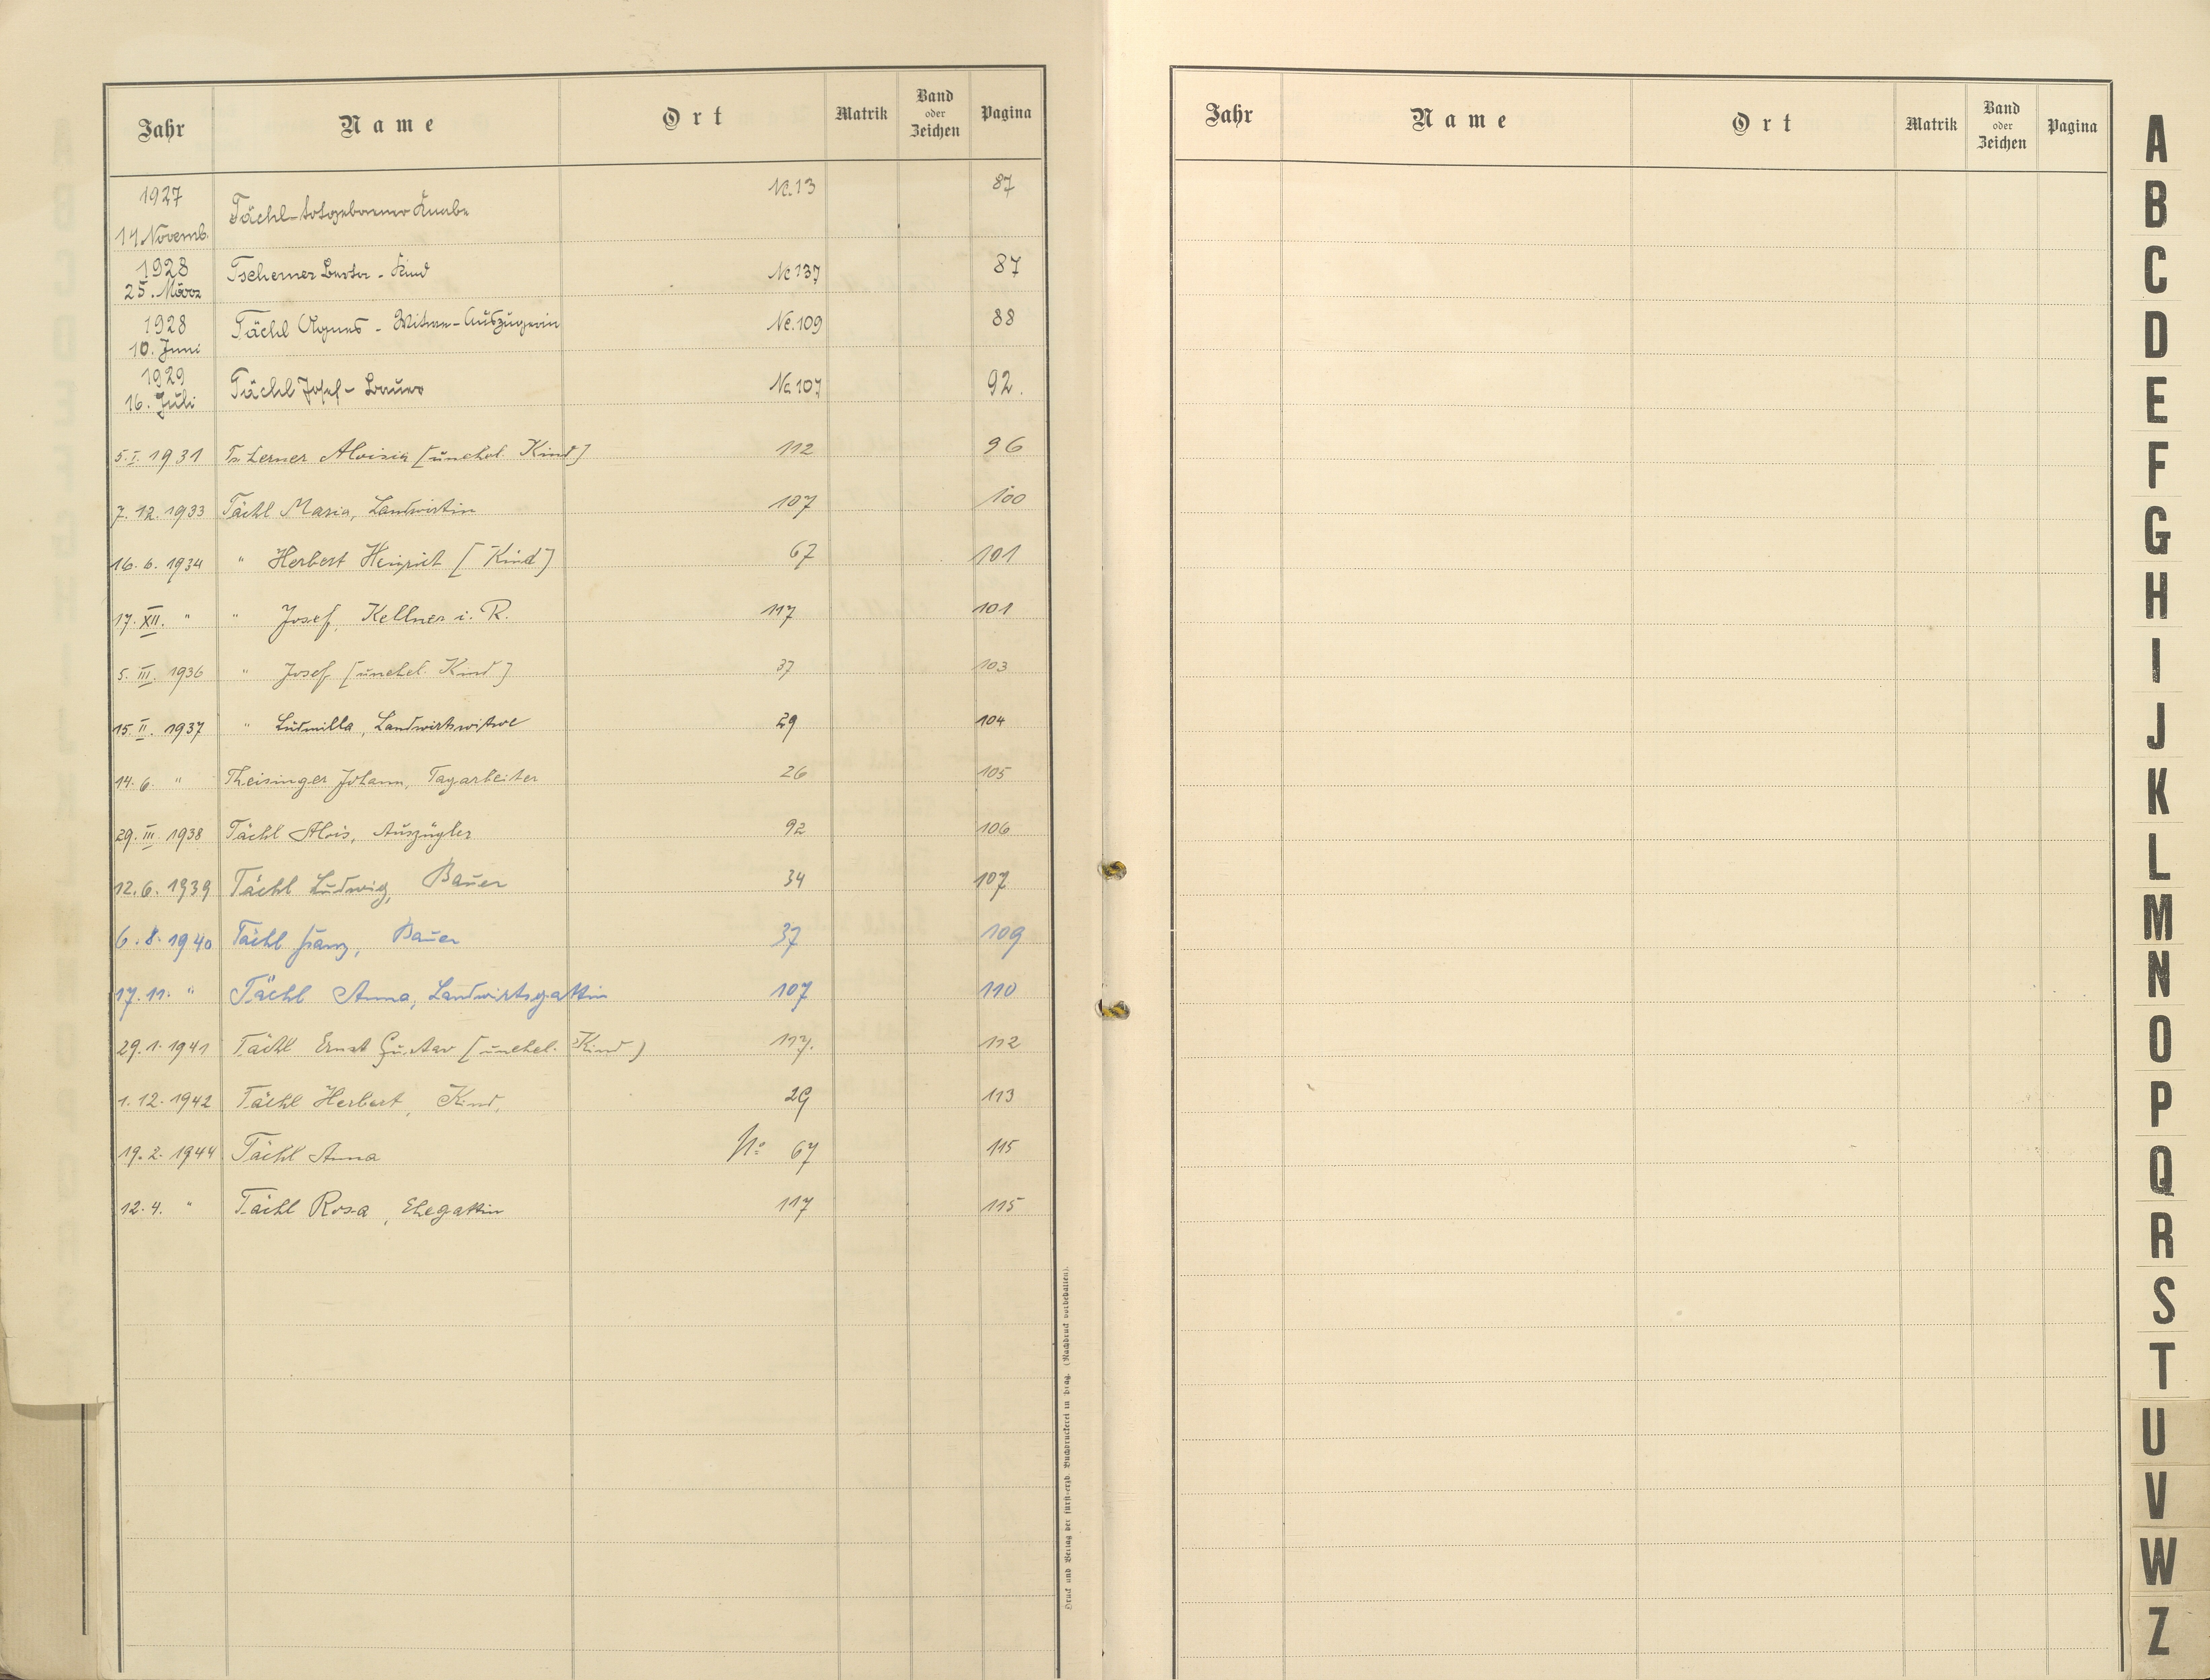 Jahr Name Ort Matrik Band oder Zeichen Pagina
1927 14. Novemb. Tächl totgeborener Knabe Nc. 13 87
1928 25. März Tscherner Berta - Kind Nc 137 87
1928 10. Juni Tächl Agnes - Witwe - Auszügerin Nc. 109 88
1929 16. Juli Tächl Josef - Bauer Nc 107 92.
5. I. 1931 Tscherner Aloisia [unehel. Kind] 112 96
7. 12. 1933 Tächl Maria, Landwirtin 107 100
16. 6. 1934 " Herbert Heinrich [Kind] 67 101
17. XII. " " Josef, Kellner i. R. 117 101
5. III. 1936 " Josef [unehel. Kind] 37 103
15. II. 1937 " Ludmilla, Landwirtswitwe 29 104
14. 6. " Theisinger Johann, Tagarbeiter 26 105
29. III. 1938 Tächl Alois, Auszügler 92 106
12. 6. 1939 Tächl Ludwig, Bauer 34 107
6. 8. 1940 Tächl Franz, Bauer 37 109
17. 11. " Tächl Anna, Landwirtsgattin 107 110
29. 1. 1941 Tächl Ernst Gustav [unehel. Kind) 117. 112
1. 12. 1942 Tächl Herbert, Kind, 29 113
19. 2. 1944 Tächl Anna No 67 115
12. 4. " Tächl Rosa, Ehegattin 117 115
Druck und Verlag der fürst-erzb. Buchdruckerei in Prag. (Nachdruck vorbehalten).
Jahr Name Ort Matrik Band oder Zeichen Pagina
A
B
C
D
E
F
G
H
I
J
K
L
M
N
O
P
Q
R
S
T
U
V
W
Z